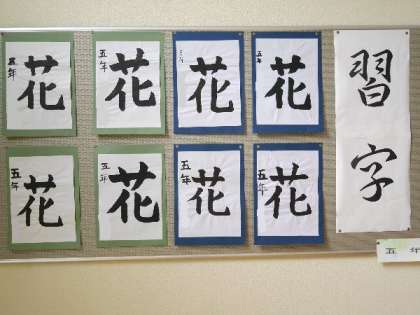 習字
花
五年
花
五年
花
花
五年
花
五年
花
五年
花
五年
花
五年
花
五年
五年